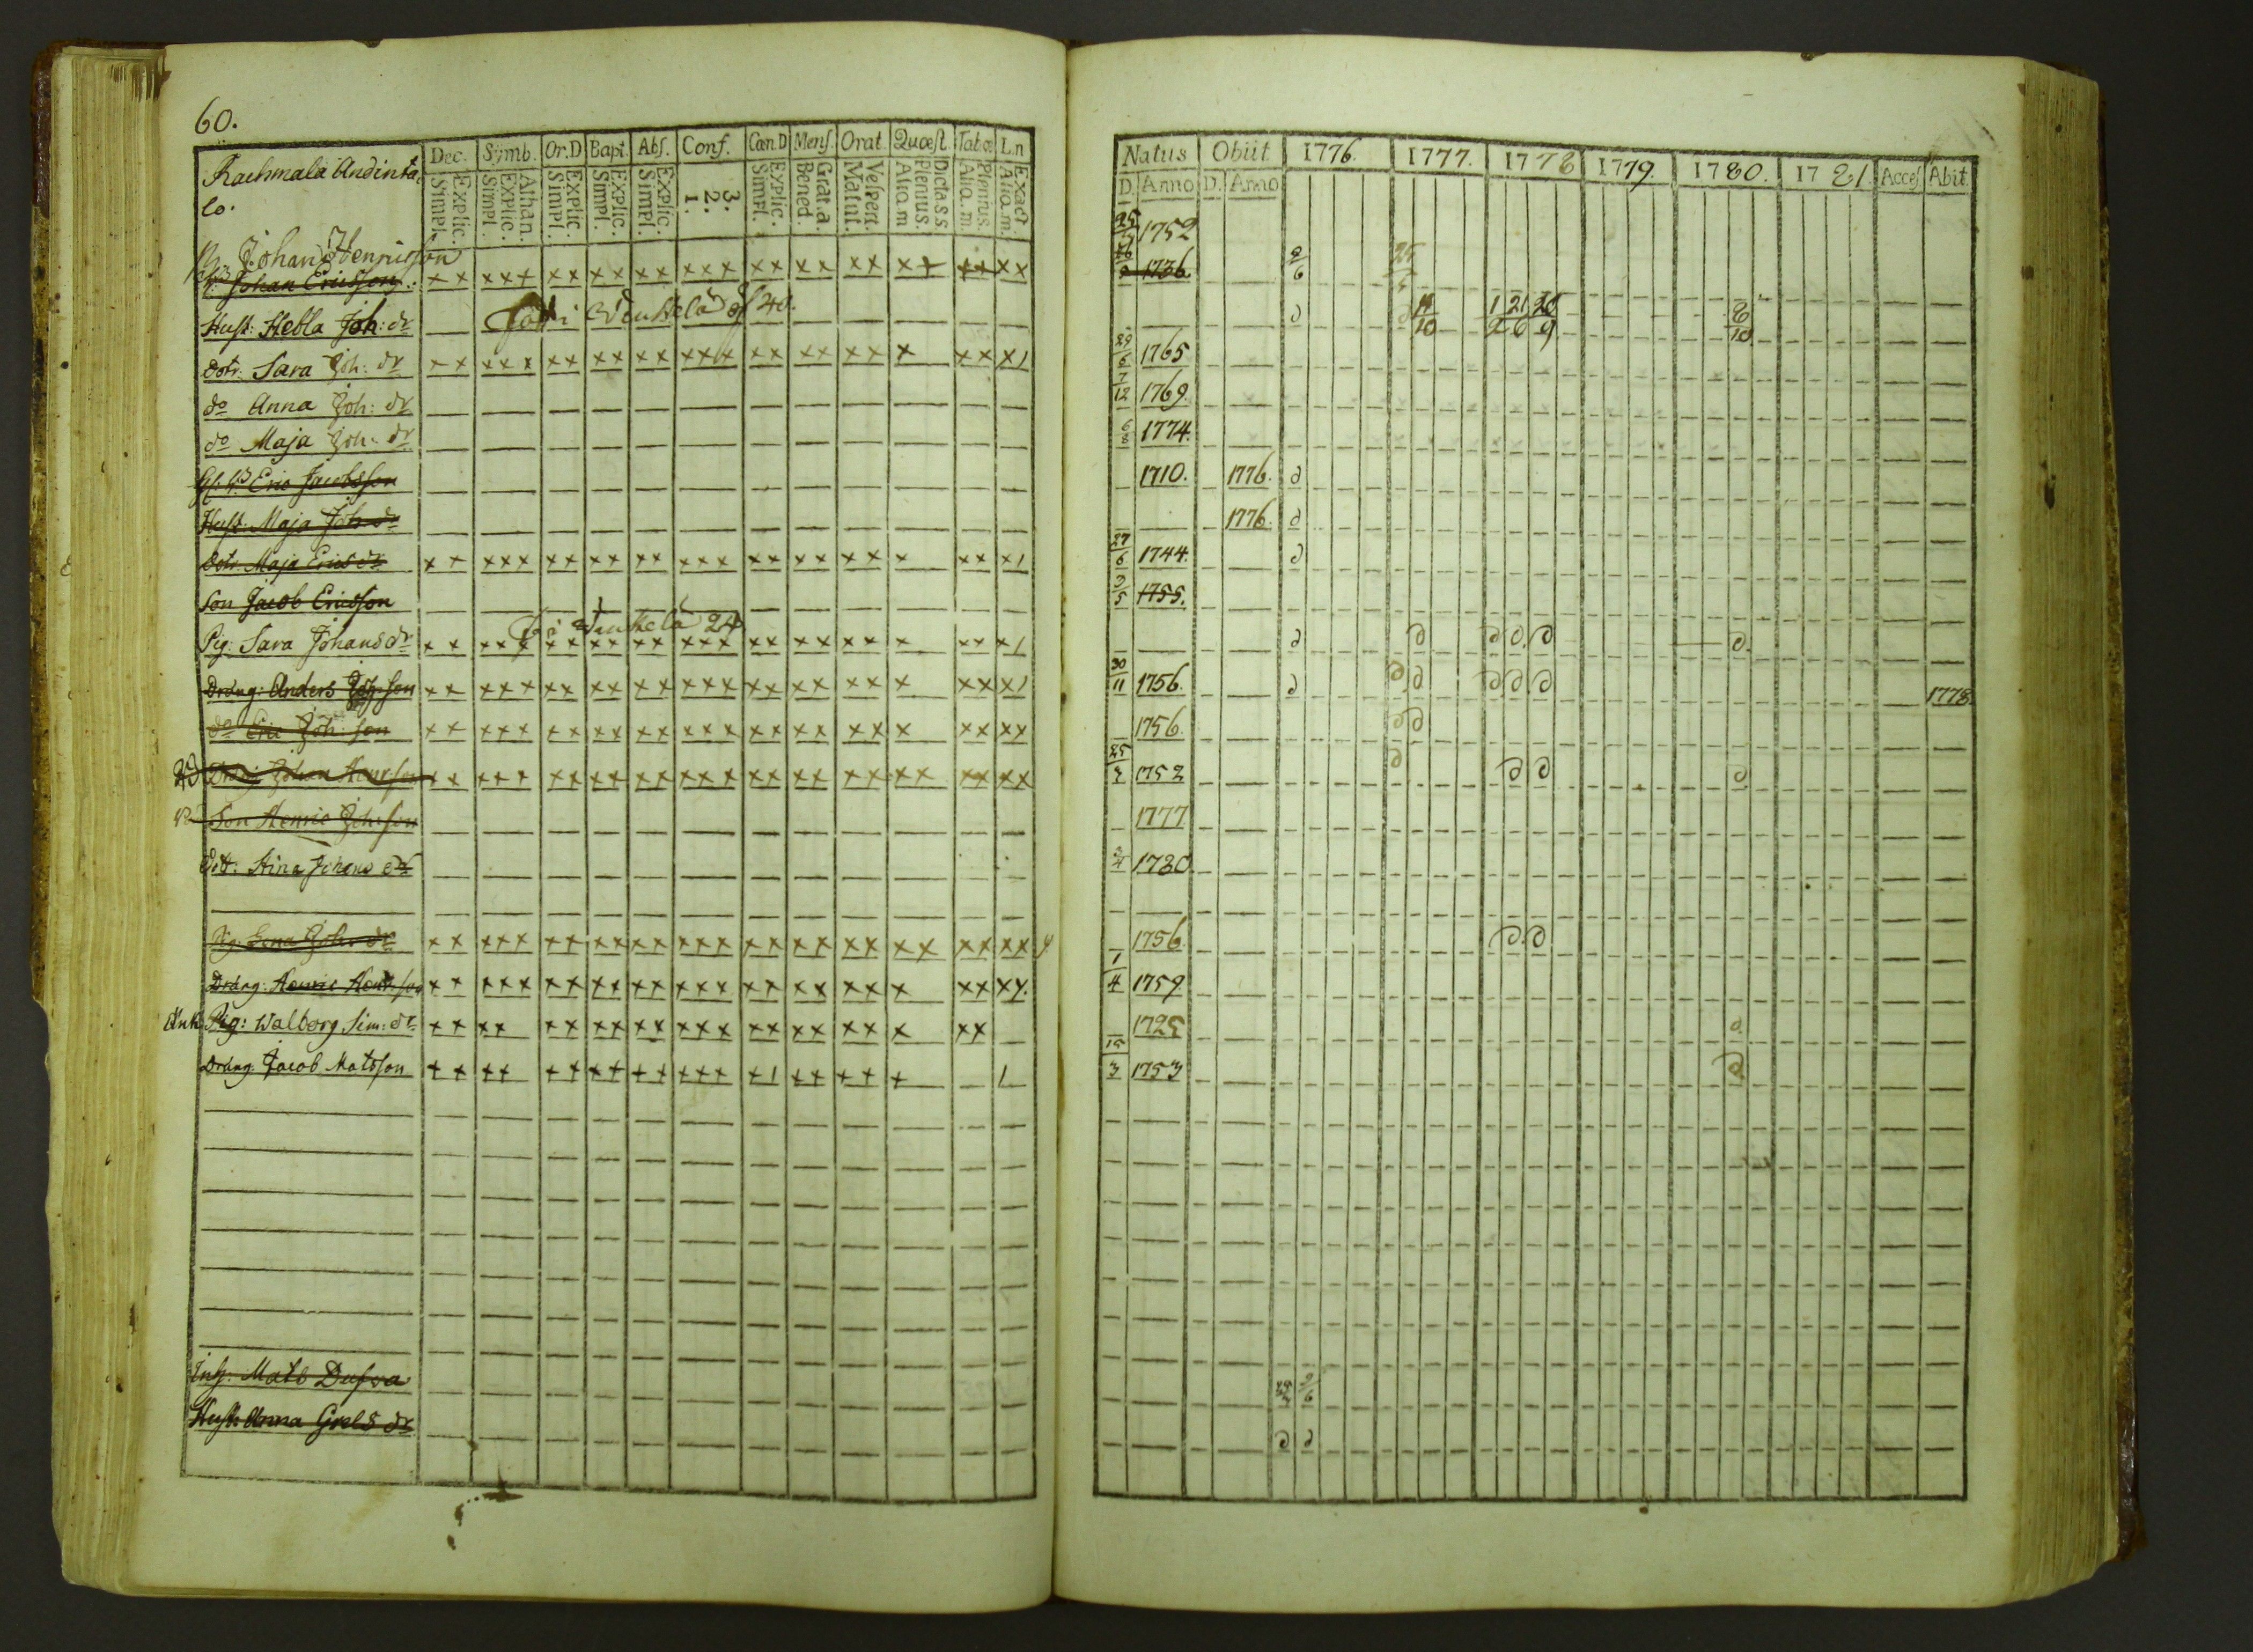 60.
Dec. Symb. Or.D Bapt. Abs. Conf. Cœn.D Mens. Orat. Quæst. Tab.œ L.n
Explic. Simpl. Athan. Explic. Simpl. Explic. Simpl. Explic. Simpl. Explic. Simpl. 3. 2. 1. Explic. Simpl. Grat.a. Bened. Vespert. Matut. Dictass Plenius. Aliq.m Plenius. Aliq.m Exact Aliq.m
Rachmala Andintalo.
Johan Henricsson
Johan Ericsson
Hust: Hebla Joh: dr
Dotr: Sara Joh: dr
do Anna Joh: dr
do Maja Joh: dr
Eric Jacobsson
Hust: Maja Joh dr
Dotr. Maja Erics dr
Son Jacob Ericsson
Pig: Sara Johans dr
Dräng: Anders Joh:son
do Eric Joh: son
Dräng Johan Henr:son
Son Henric Joh:son
Dott: Stina Johans dr
Pig: Lena Joh: dr
Dräng: Henric Henr:son
Enk. Pig: Walborg Sim: dr
Dräng. Jacob Matsson
Inh: Matb Dufva
Hust: Anna Grels dr
Natus Obiit 1776. 1777. 1778 1779. 1780. 1781. Acces. Abit.
D. Anno D. Anno
25 1752
1736. 9/6
11/10 1/2 21/6 20/9 8/10
29/6 1765
7/12 1769
6/8 1774.
1710. 1776.
1776.
27/6 1744.
9/5 1755.
30/11 1756. 1778.
1756.
25/3 1752
1777
3/4 1780
1756.
1/4 1759
1725
15/3 1753
9/6